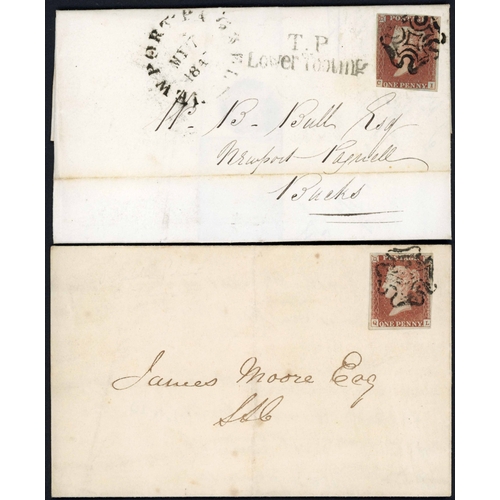 NEWPORT-PAGNELL
T.P
Lower Tooting
W. B. Bull Esq
Newport Pagnell
Bucks
ONE PENNY
James Moore Esq
SSC
ONE PENNY